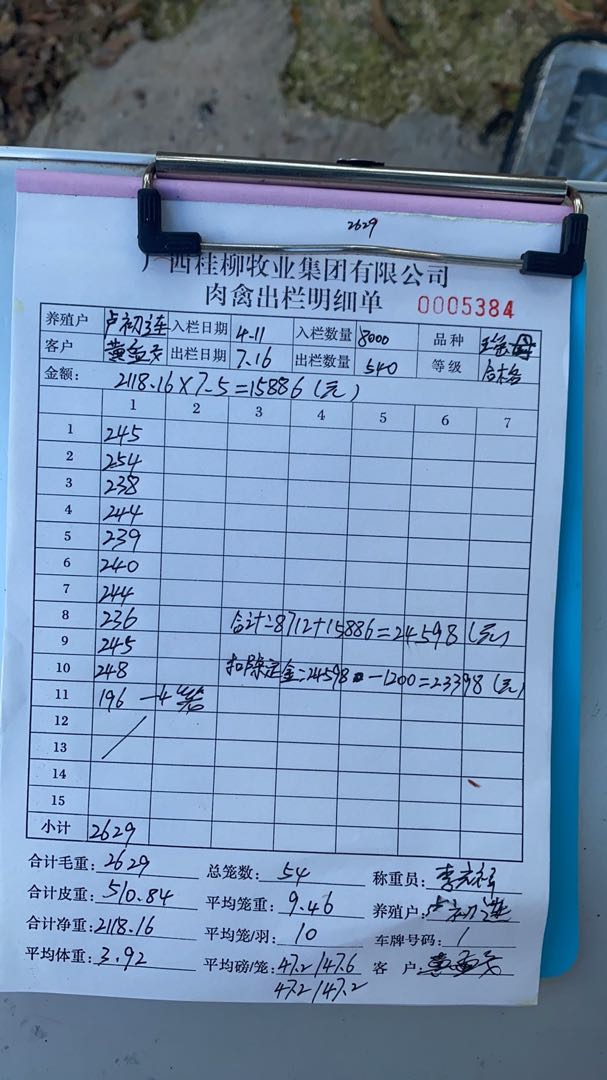 2629
广西桂柳牧业集团有限公司
肉禽出栏明细单 0005384
养殖户 卢初连 入栏日期 4-11 入栏数量 8000 品种
客户 出栏日期 7.16 出栏数量 540 等级 合格
金额: 2118.16×7.5=15886(元)
1 2 3 4 5 6 7
1 245
2 254
3 238
4 244
5 239
6 240
7 244
8 236 合计=8712+15886=24598(元)
9 245
10 248 扣除定金=24598-1200=23398(元)
11 196 -4笼
12
13
14
15
小计 2629
合计毛重: 2629 总笼数: 54 称重员:
合计皮重: 510.84 平均笼重: 9.46 养殖户: 卢初连
合计净重: 2118.16 平均笼/羽: 10 车牌号码: 1
平均体重: 3.92 平均磅/笼: 47.2/47.6 客户:
47.2/47.2